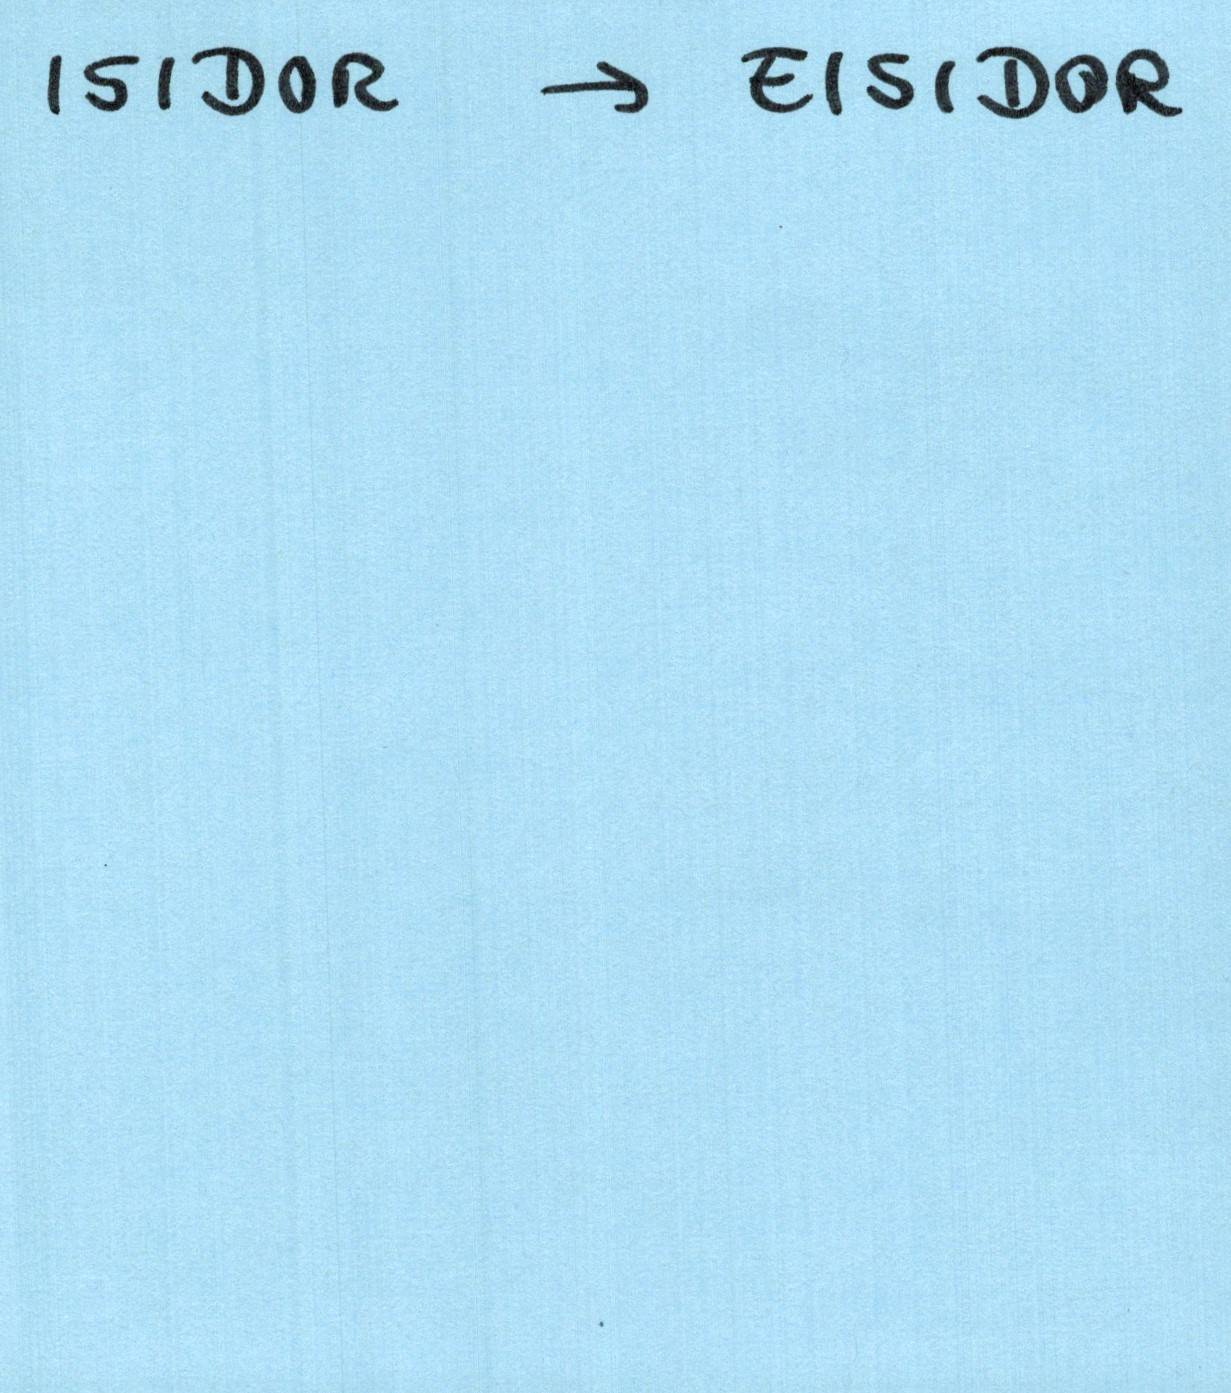 ISIDOR → EISIDOR